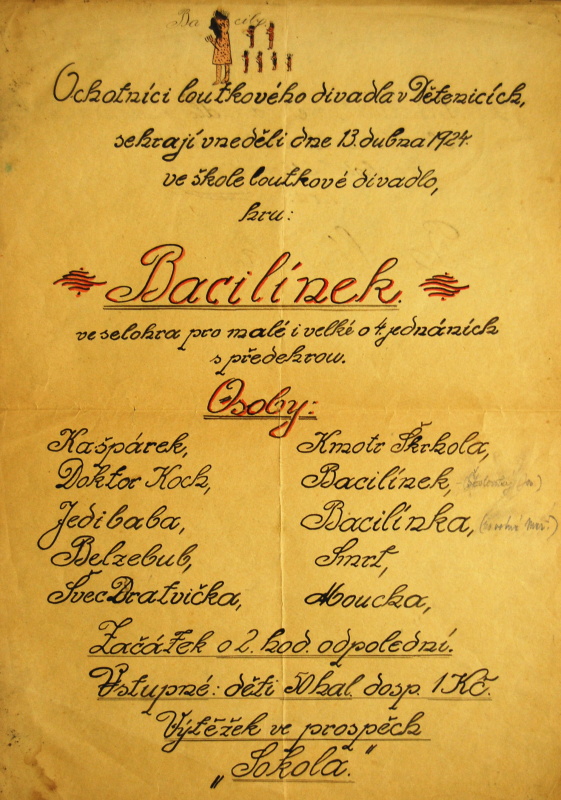 Bacily
Ochotníci loutkového divadla v Dětenicích,
sehrají v neděli dne 13. dubna 1924.
ve škole loutkové divadlo,
hru:
Bacilínek.
veselohra pro malé i velké o 4 jednáních
s předehrou.
Osoby:
Kašpárek, Kmotr Škrhola,
Doktor Koch, Bacilínek,
Jedibaba, Bacilínka,
Belzebub, Smrt,
Švec Dratvička, Moucha,
Začátek o 2. hod. odpolední.
Vstupné: děti 50 hal. dosp. 1 Kč.
Výtěžek ve prospěch
„Sokola."